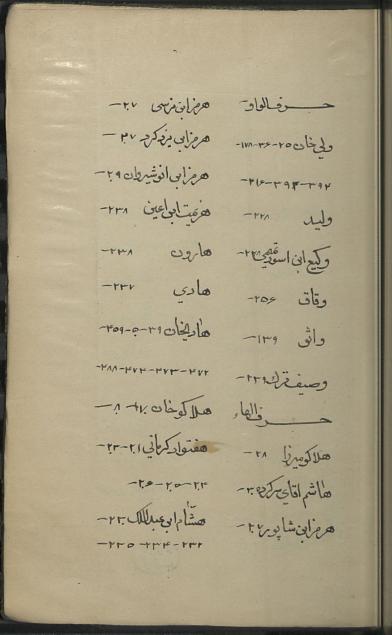 حرف الواو
ولی خان ۲۵-۳۶-۱۷۸-
۳۹۲-۳۹۴-۴۱۶-
ولید ۲۲۸-
وکیع ابن اسود تمیمی
وقاق ۲۵۶-
واثق ۱۳۹-
وصیف ترک ۲۳۹-
حرف الهاء
هلاکو میرزا ۲۸-
هاشم اقای
هرمز ابن شاپور ۲۷-
هرمز ابن نرسی ۲۷-
هرمز ابن یزد کرد ۲۷-
هرمز ابن انوشیروان ۲۹-
هزیمت ابن اعین ۲۳۸-
هارون ۲۳۸-
هادی ۲۳۷-
هادیخان ۳۹-۵۰-۳۵۹-
۲۷۲-۲۷۳-۲۷۴-۲۸۸-
هلاکو خان ۸-
هفتواد کرمانی ۲۱-۲۳-
۲۴-۲۵-۲۶-
هشام ابن عبدالملک ۲۳۰-
۲۳۲-۲۳۴-۲۳۵-